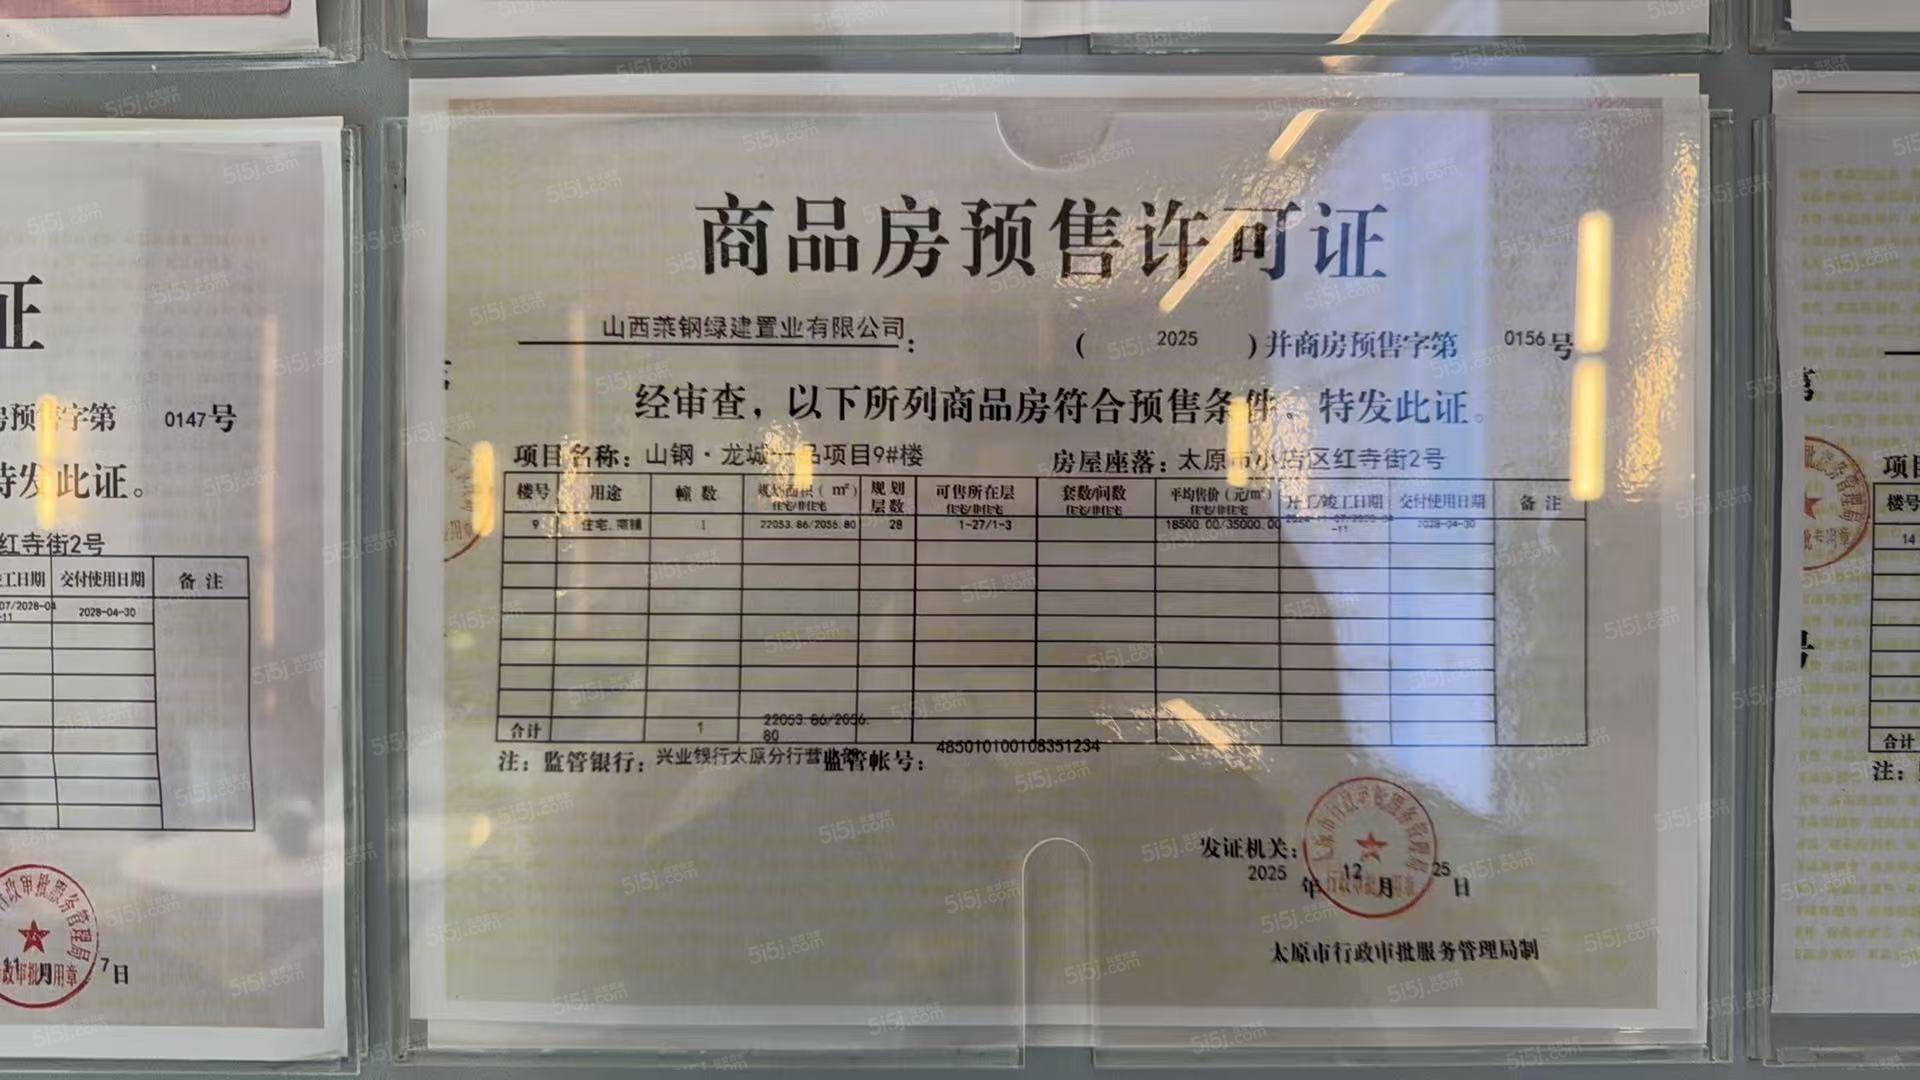 证
房预售字第 0147号
特发此证。
红寺街2号
竣工日期 交付使用日期 备注
07/2028-04-11 2028-04-30
11月7日
商品房预售许可证
山西莱钢绿建置业有限公司: (2025)并商房预售字第0156号
经审查，以下所列商品房符合预售条件，特发此证。
项目名称：山钢·龙城一品项目9#楼 房屋座落：太原市小店区红寺街2号
楼号 用途 幢数 规划面积（m²）住宅/非住宅 规划层数 可售所在层 住宅/非住宅 套数/间数 住宅/非住宅 平均售价（元/m²）住宅/非住宅 开工/竣工日期 交付使用日期 备注
9 住宅、商铺 1 22053.86/2056.80 28 1-27/1-3 18500.00/35000.00 2028-04-30
合计 1 22053.86/2056.80
注：监管银行：兴业银行太原分行营业部 监管帐号：485010100108351234
发证机关：
太原市行政审批服务管理局
行政审批专用章
2025年12月25日
太原市行政审批服务管理局制
项目
楼号
14
合计
注：
5i5j.com